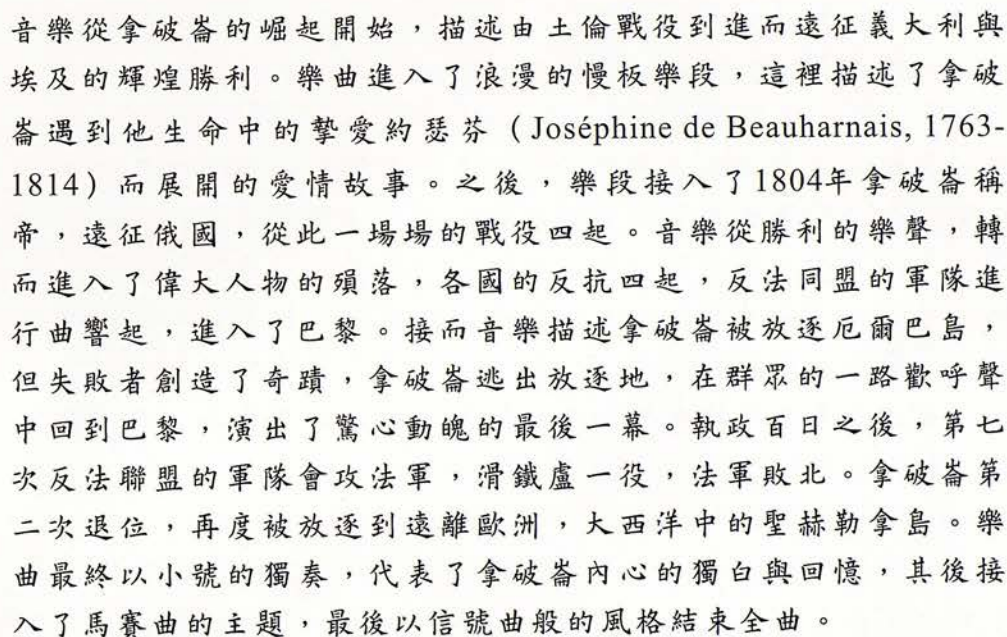 音樂從拿破崙的崛起開始，描述由土倫戰役到進而遠征義大利與
埃及的輝煌勝利。樂曲進入了浪漫的慢板樂段，這裡描述了拿破
崙遇到他生命中的摯愛約瑟芬（Joséphine de Beauharnais, 1763-
1814）而展開的愛情故事。之後，樂段接入了1804年拿破崙稱
帝，遠征俄國，從此一場場的戰役四起。音樂從勝利的樂聲，轉
而進入了偉大人物的殞落，各國的反抗四起，反法同盟的軍隊進
行曲響起，進入了巴黎。接而音樂描述拿破崙被放逐厄爾巴島，
但失敗者創造了奇蹟，拿破崙逃出放逐地，在群眾的一路歡呼聲
中回到巴黎，演出了驚心動魄的最後一幕。執政百日之後，第七
次反法聯盟的軍隊會攻法軍，滑鐵盧一役，法軍敗北。拿破崙第
二次退位，再度被放逐到遠離歐洲，大西洋中的聖赫勒拿島。樂
曲最終以小號的獨奏，代表了拿破崙內心的獨白與回憶，其後接
入了馬賽曲的主題，最後以信號曲般的風格結束全曲。